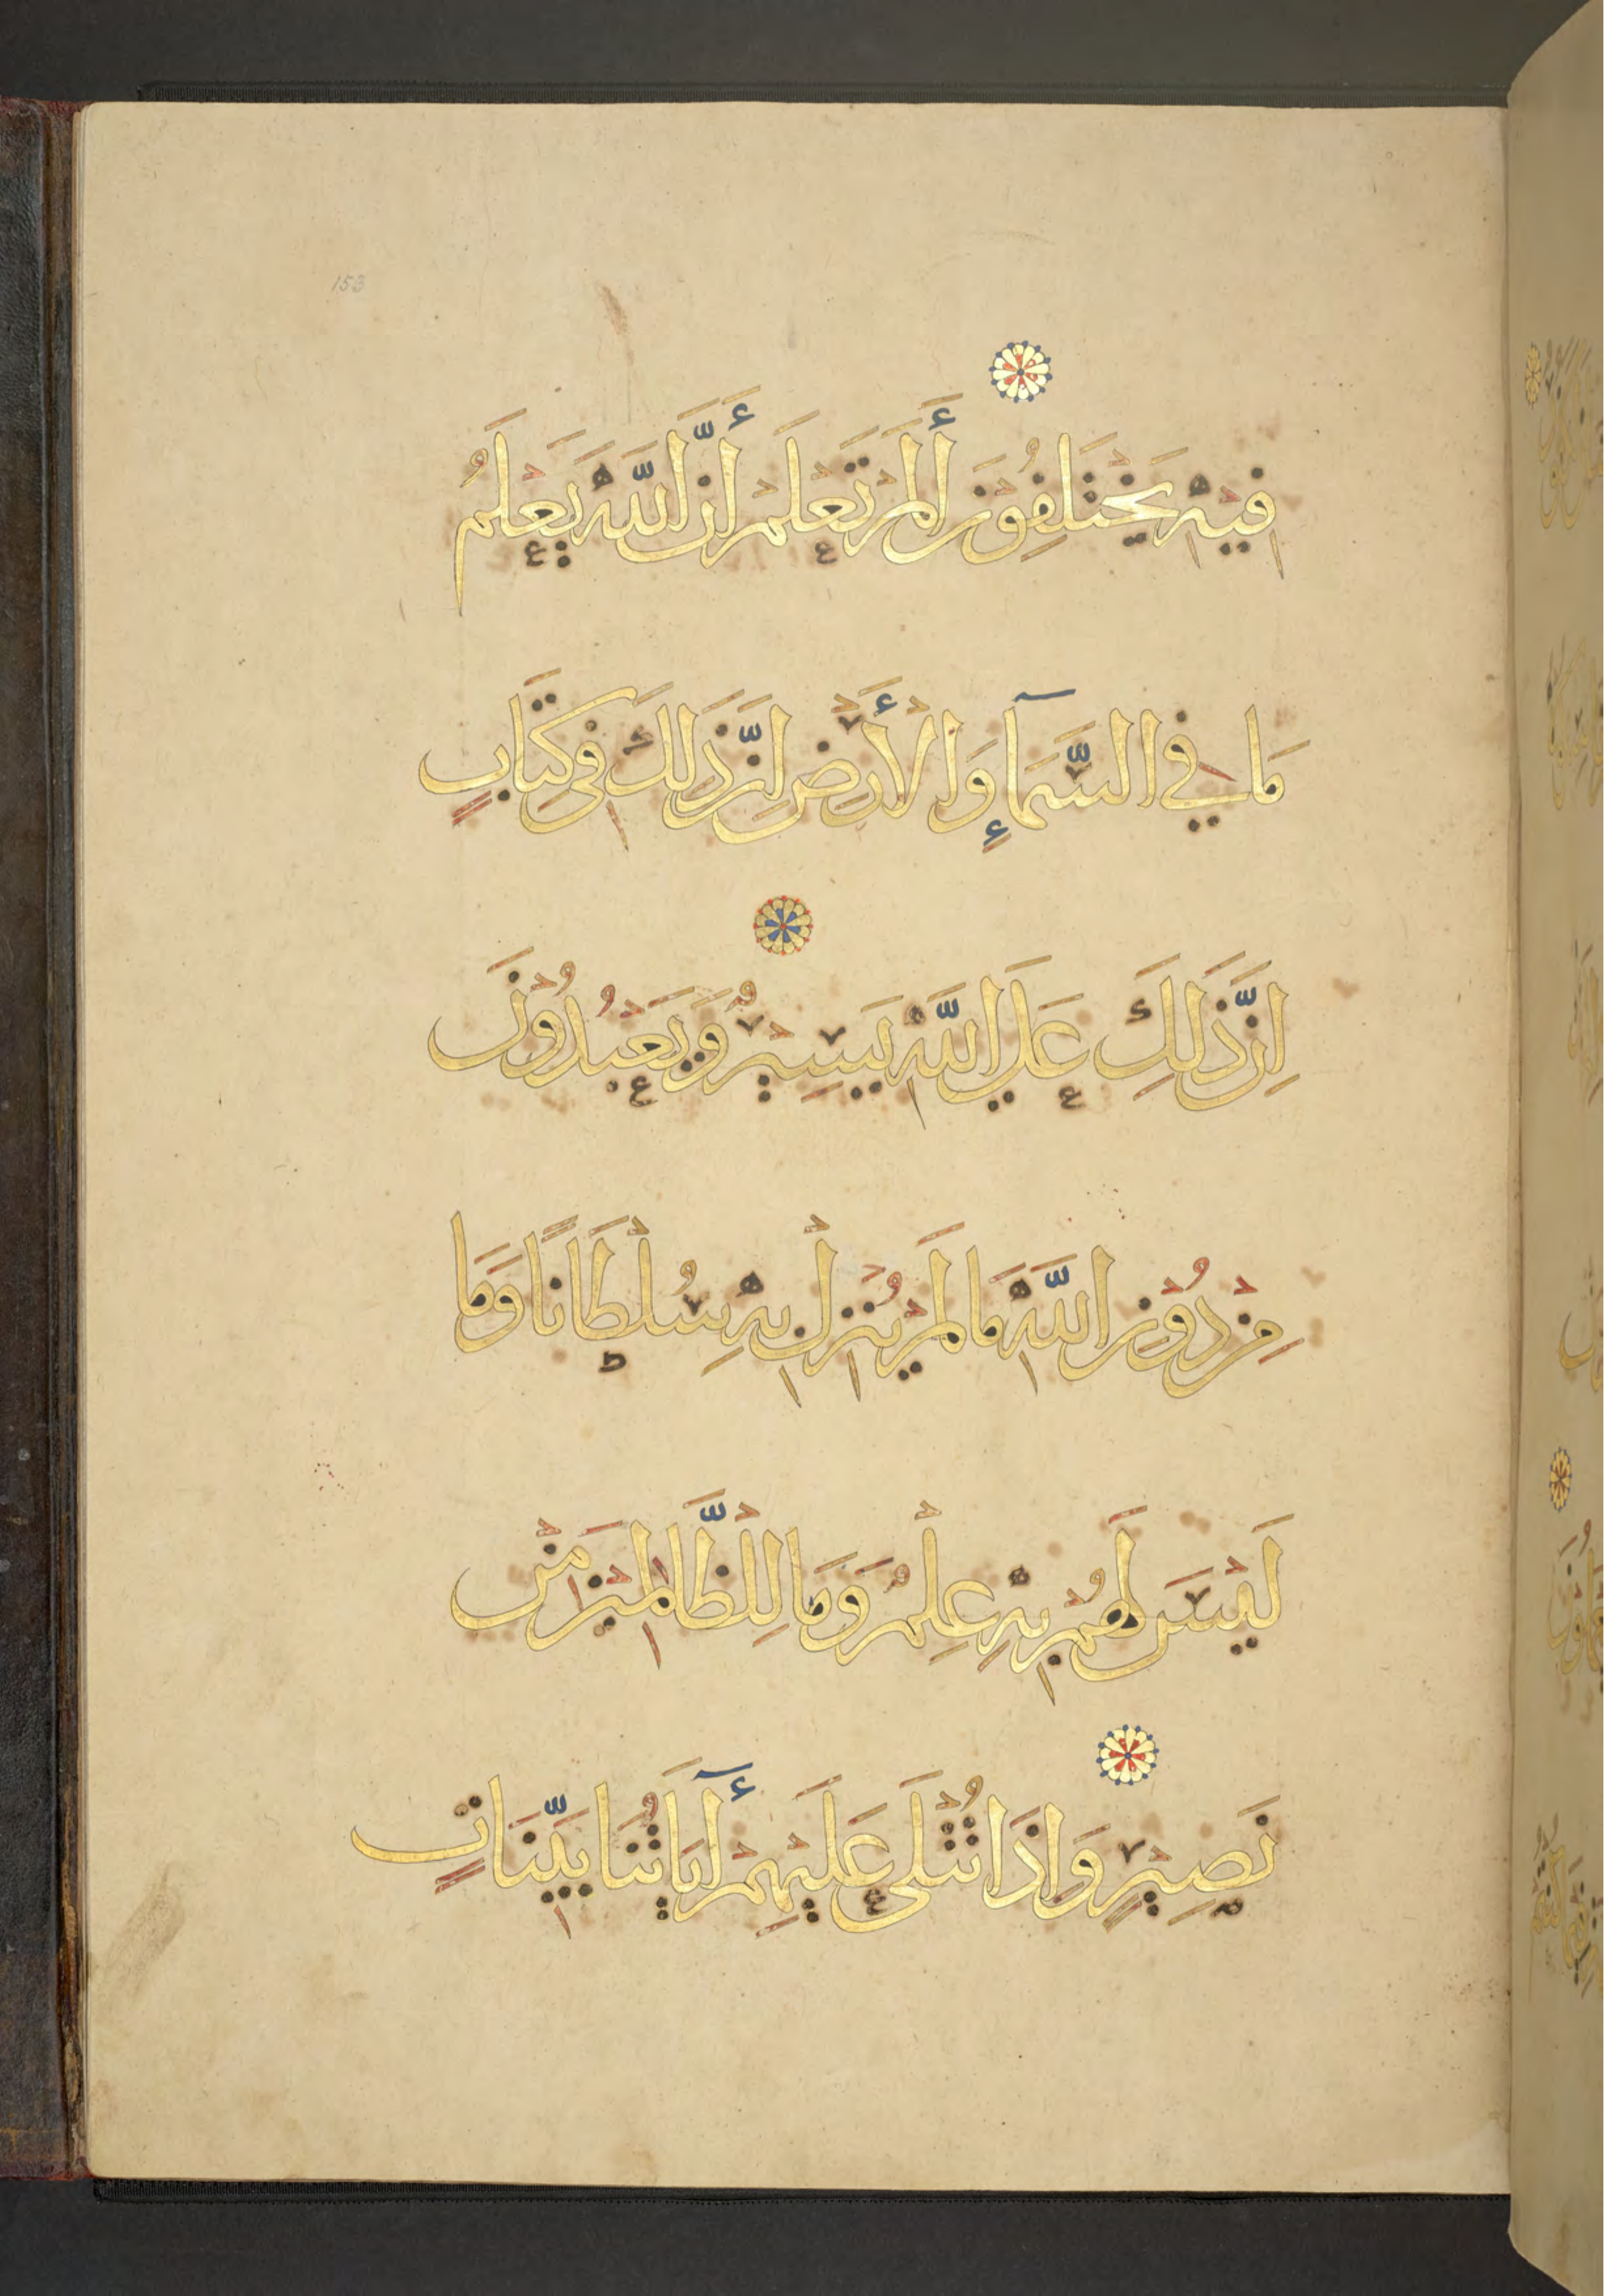 153
فِيهِ يَخْتَلِفُوْنَ أَلَمْ تَعْلَمْ أَنَّ اللَّهَ يَعْلَمُ
مَا فِي السَّمَآءِ وَالْأَرْضِ اِنَّ ذَلِكَ فِى كِتَابٍ
اِنَّ ذَلِكَ عَلَى اللَّهِ يَسِيْرٌ وَيَعْبُدُوْنَ
مِنْ دُوْنِ اللَّهِ مَا لَمْ يُنْزِلْ بِهِ سُلْطَانًا وَمَا
لَيْسَ لَهُمْ بِهِ عِلْمٌ وَمَا لِلظَّالِمِيْنَ مِنْ
نَصِيْرٍ وَاِذَا تُتْلَى عَلَيْهِمْ أَيَاتُنَا بَيِّنَاتٍ